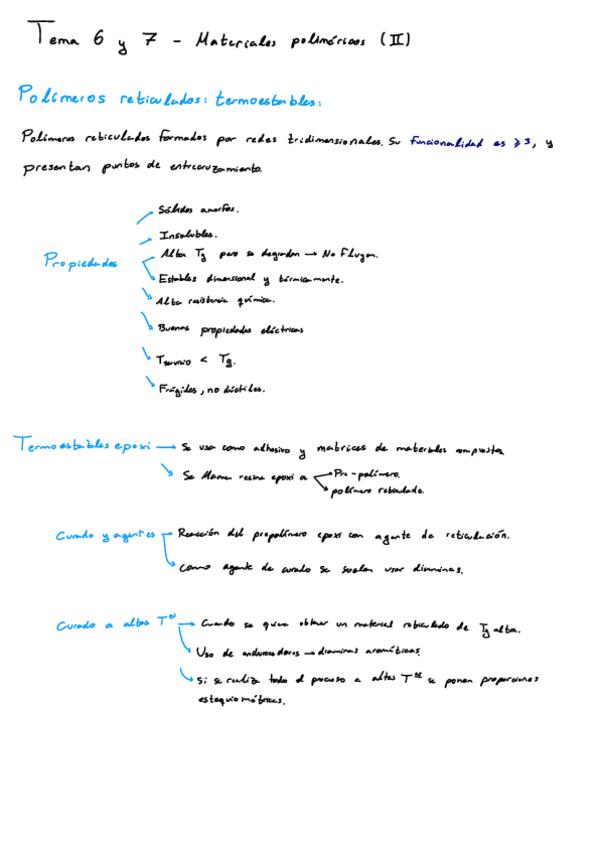 Tema 6 y 7 - Materiales poliméricos (II)
Polímeros reticulados: termoestables:
Polímeros reticulados formados por redes tridimensionales. Su funcionalidad es ≥ 3, y
presentan puntos de entrecruzamiento.
Propiedades
Sólidos amorfos.
Insolubles.
Alta Tg pero se degradan → No Fluyen.
Estables dimensional y térmicamente.
Alta resistencia química.
Buenas propiedades eléctricas
Tservicio < Tg.
Frágiles, no dúctiles.
Termoestables epoxi → Se usa como adhesivo y matrices de materiales compuestos
Se llama resina epoxi a → Pre-polímero.
polímero reticulado.
Curado y agentes → Reacción del prepolímero epoxi con agente de reticulación.
Como agente de curado se suelen usar diaminas.
Curado a altas Tas → Cuando se quiere obtener un material reticulado de Tg alta.
Uso de endurecedores → diaminas aromáticas.
Si se realiza todo el proceso a altas Tas se ponen proporciones
estequiométricas.